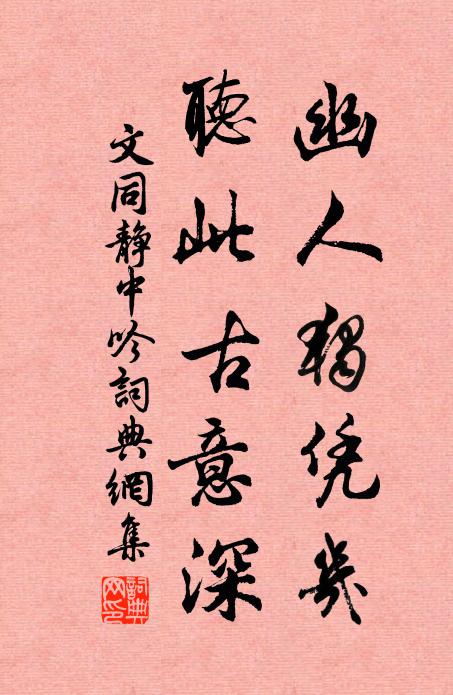 幽人獨凭几
聽此古意深
文同靜中吟詞典網集
詞典網印